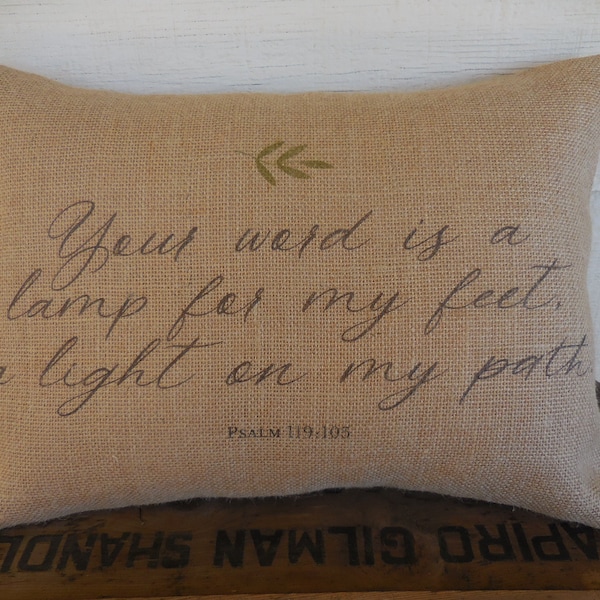 Your word is a
lamp for my feet,
a light on my path.
PSALM 119:105
APIRO GILMAN SHANDL